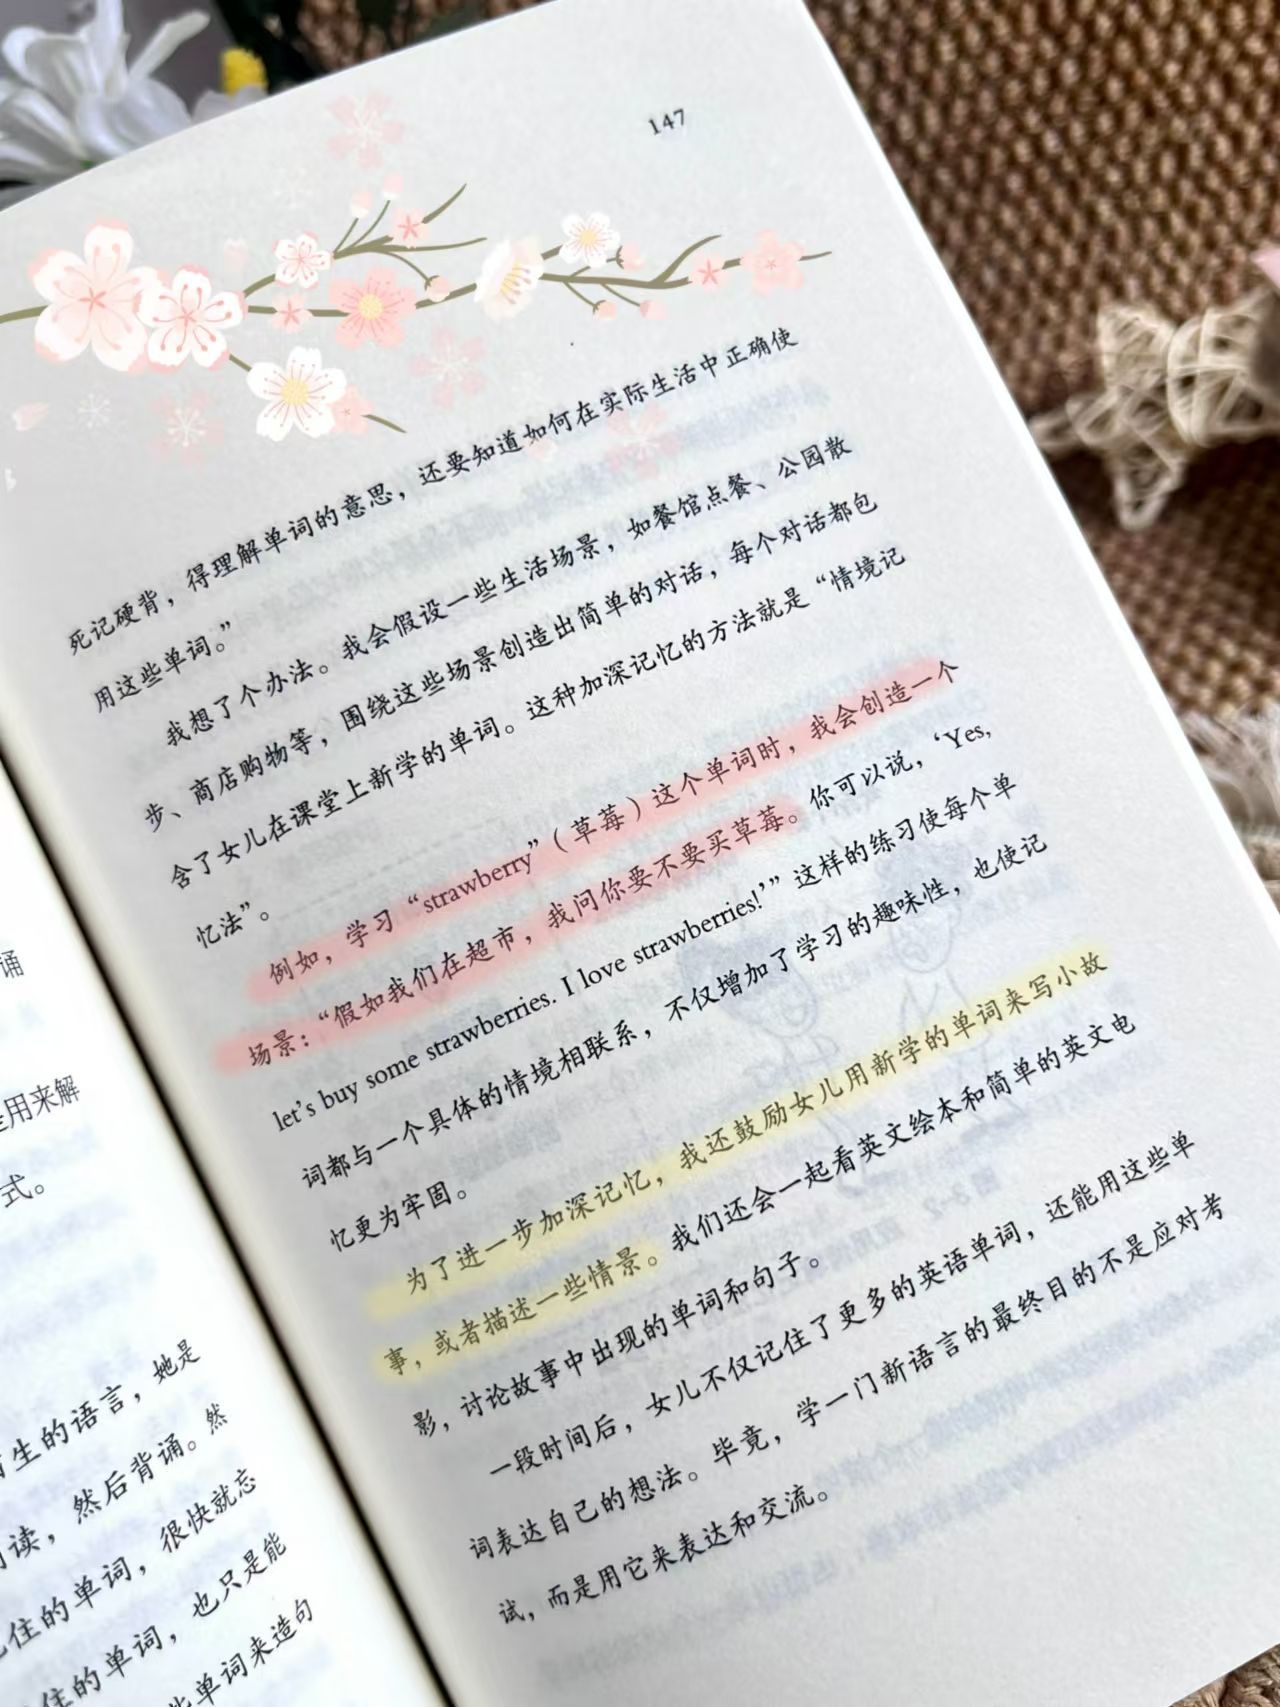 诵
是用来解
式。
生的语言，她是
读，然后背诵。然
住的单词，很快就忘
住的单词，也只是能
些单词来造句
147
死记硬背，得理解单词的意思，还要知道如何在实际生活中正确使
用这些单词。”
我想了个办法。我会假设一些生活场景，如餐馆点餐、公园散
步、商店购物等，围绕这些场景创造出简单的对话，每个对话都包
含了女儿在课堂上新学的单词。这种加深记忆的方法就是“情境记
忆法”。
例如，学习“strawberry”（草莓）这个单词时，我会创造一个
场景：“假如我们在超市，我问你要不要买草莓。你可以说，‘Yes,
let's buy some strawberries. I love strawberries!’”这样的练习使每个单
词都与一个具体的情境相联系，不仅增加了学习的趣味性，也使记
忆更为牢固。
为了进一步加深记忆，我还鼓励女儿用新学的单词来写小故
事，或者描述一些情景。我们还会一起看英文绘本和简单的英文电
影，讨论故事中出现的单词和句子。
一段时间后，女儿不仅记住了更多的英语单词，还能用这些单
词表达自己的想法。毕竟，学一门新语言的最终目的不是应对考
试，而是用它来表达和交流。